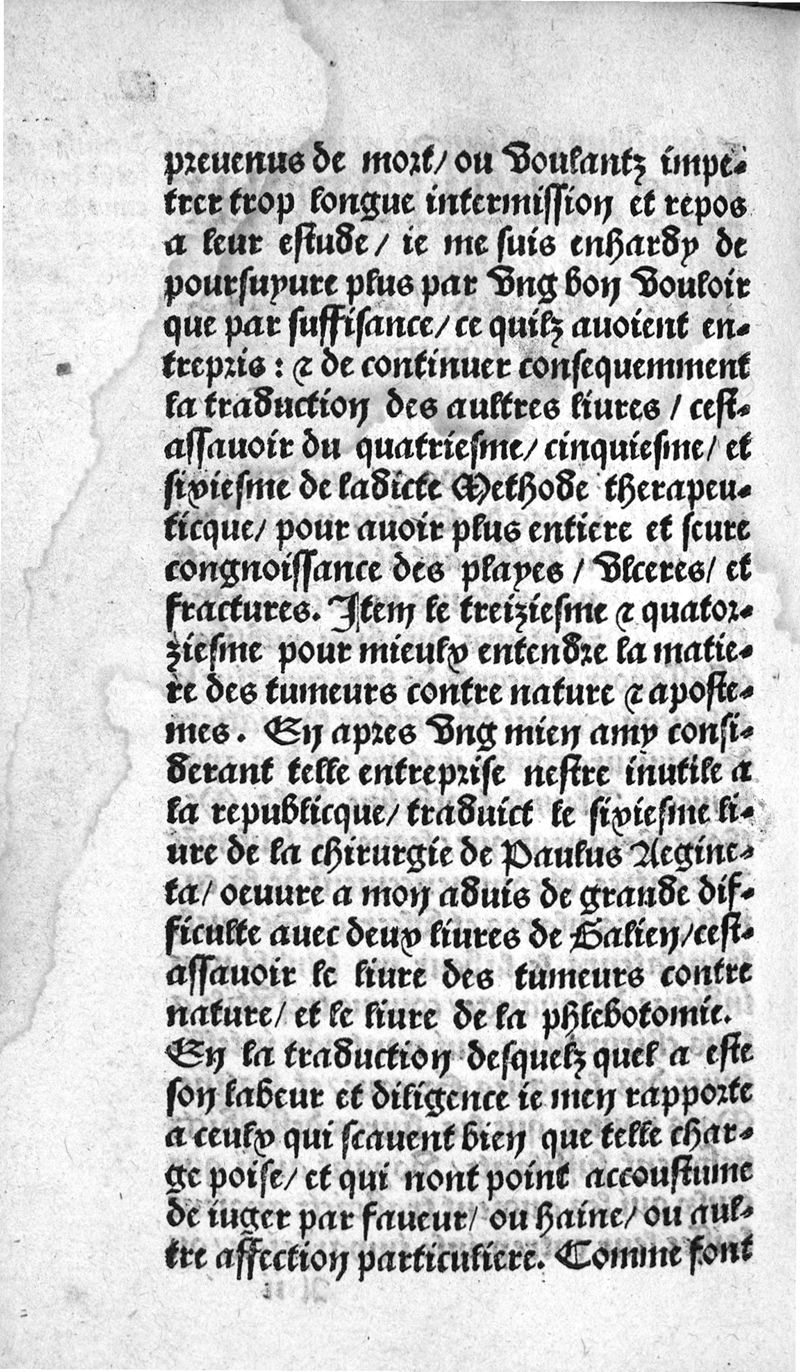 preuenus de mort/ ou voulantz impe-
trer trop longue intermission et repos
a leur estude/ ie me suis enhardy de
poursuyure plus par vng bon vouloir
que par suffisance/ ce quilz auoient en-
trepris : & de continuer consequemment
la traduction des aultres liures / cest-
assauoir du quatriesme/ cinquiesme/ et
sixiesme de ladicte Methode therapeu-
ticque/ pour auoir plus entiere et seure
congnoissance des playes / vlceres/ et
fractures. Item le treiziesme & quator-
ziesme pour mieulx entendre la matie-
re des tumeurs contre nature & aposte-
mes. En apres vng mien amy consi-
derant telle entreprise nestre inutile a
la republicque/ traduict le sixiesme li-
ure de la chirurgie de Paulus Aegine-
ta/ oeuure a mon aduis de grande dif-
ficulte auec deux liures de Galien/cest-
assauoir le liure des tumeurs contre
nature/ et le liure de la phlebotomie.
En la traduction desquelz quel a este
son labeur et diligence ie men rapporte
a ceulx qui scauent bien que telle char-
ge poise/ et qui nont point accoustume
de iuger par faueur/ ou haine/ ou aul-
tre affection particuliere. Comme font